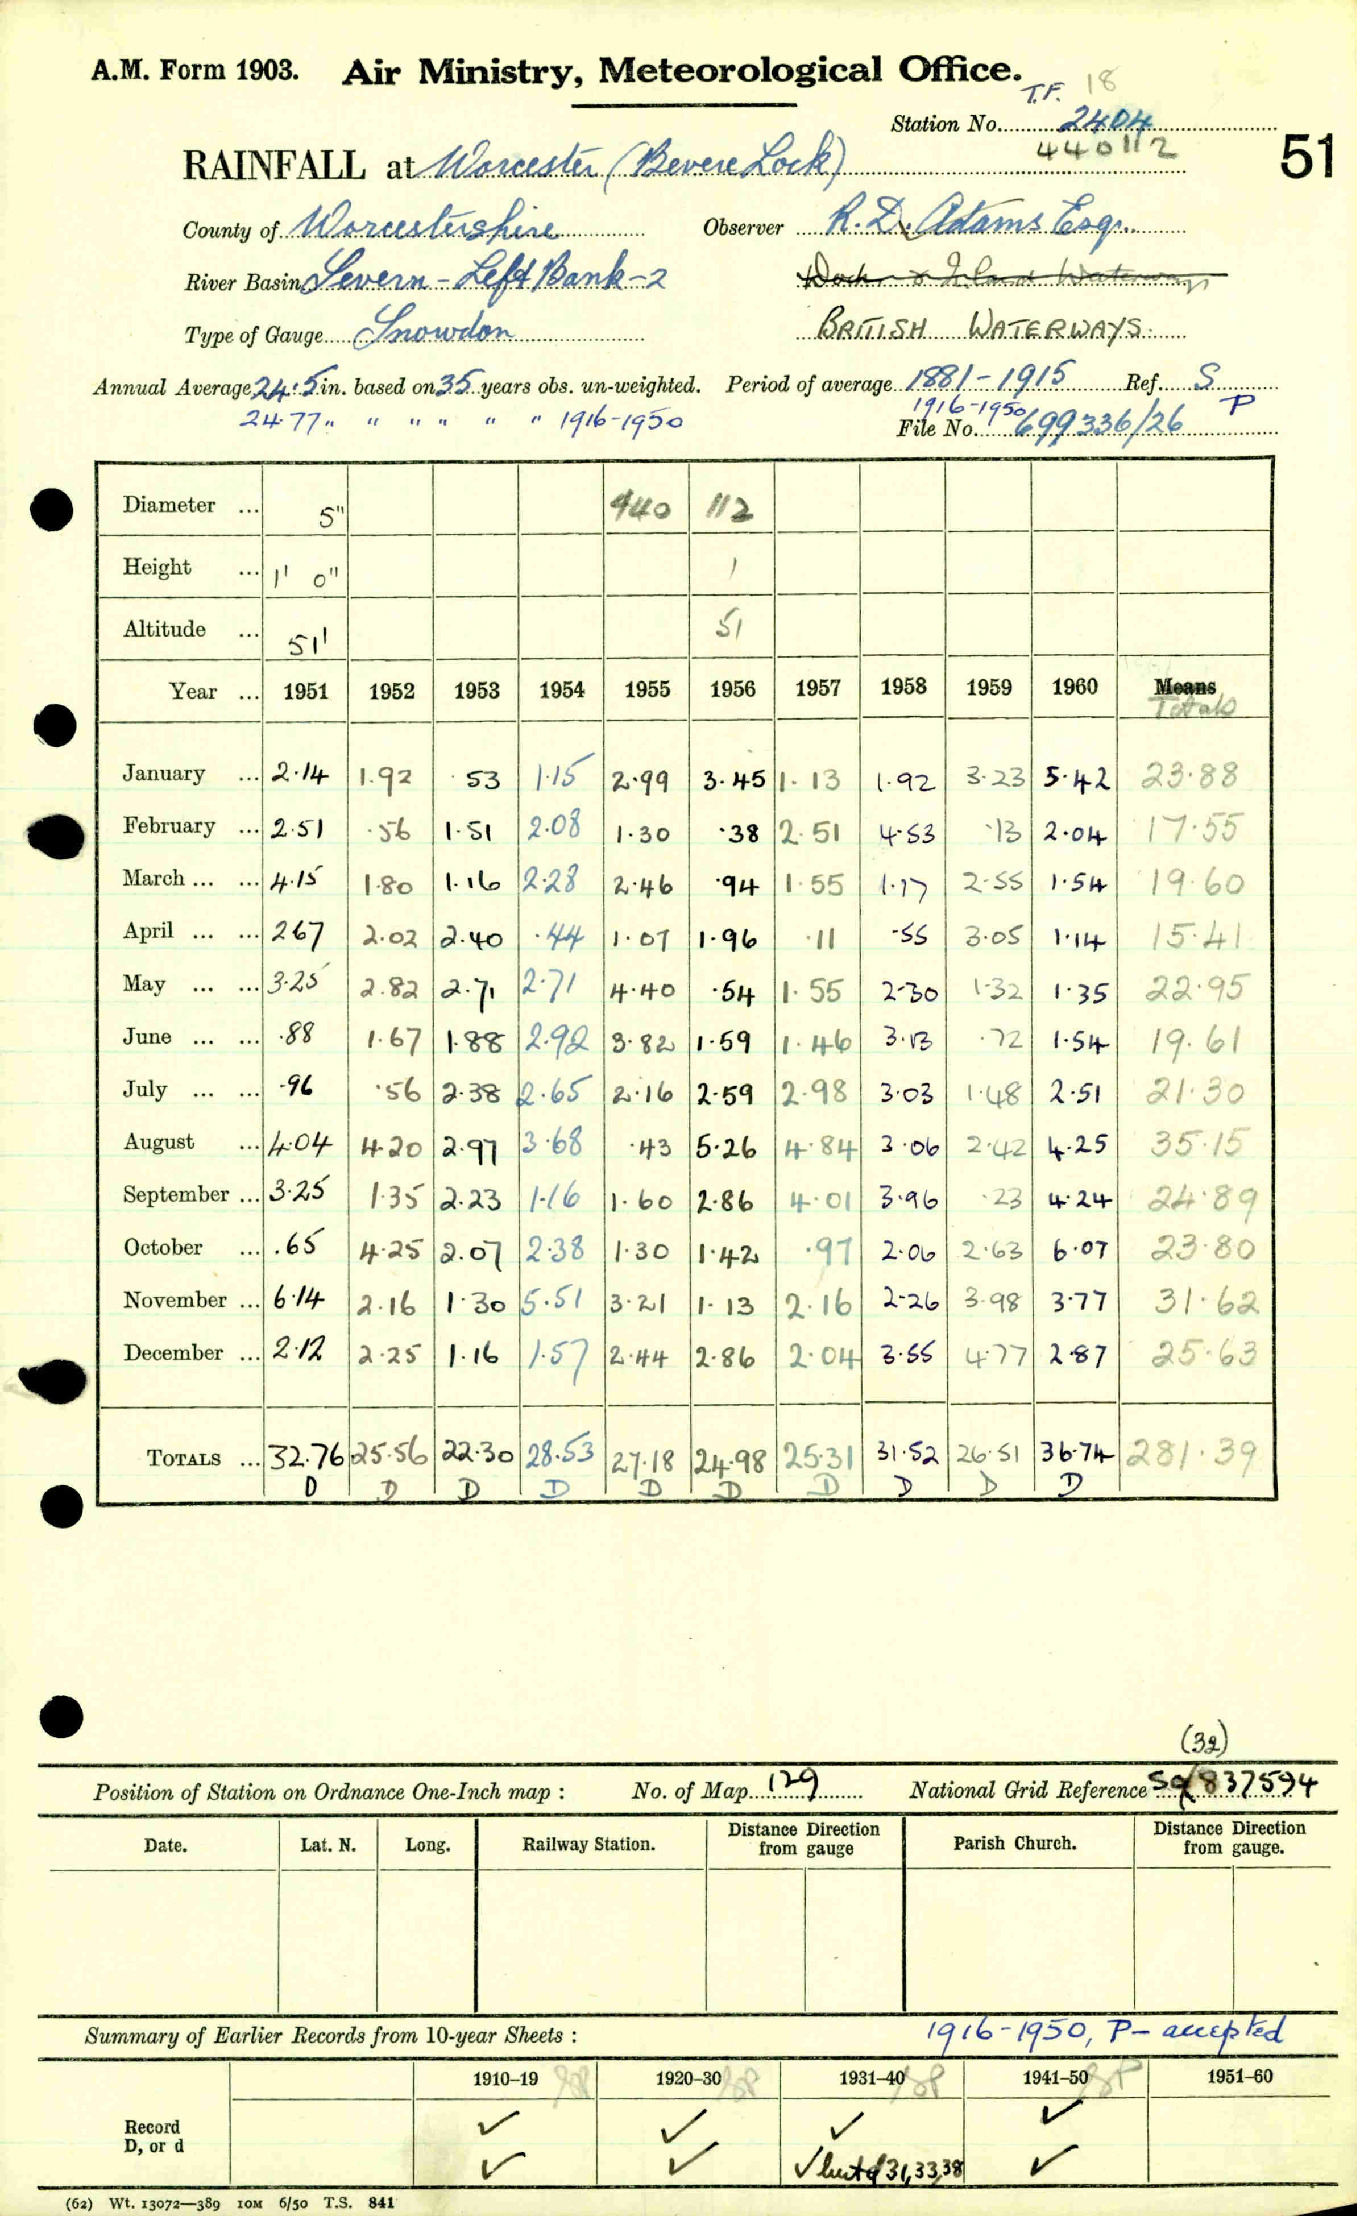 A.M. Form 1903. Air Ministry, Meteorological Office.
T.F. 18
Station No. 2404
440112
51
RAINFALL at Worcester (Bevere Lock)
County of Worcestershire Observer R. D. Adams Esq.
River Basin Severn - Left Bank - 2 Dock & Inland Waterways
Type of Gauge Snowdon BRITISH WATERWAYS.
Annual Average 24.5 in. based on 35 years obs. un-weighted. Period of average 1881-1915 Ref. S
24.77 " " " " " " 1916-1950 1916-1950 P
File No. 699336/26
Diameter ... 5" 440 112
Height ... 1' 0" 1
Altitude ... 51' 51
Year ... 1951 1952 1953 1954 1955 1956 1957 1958 1959 1960 Means
Totals
January ... 2.14 1.92 .53 1.15 2.99 3.45 1.13 1.92 3.23 5.42 23.88
February ... 2.51 .56 1.51 2.08 1.30 .38 2.51 4.53 .13 2.04 17.55
March ... ... 4.15 1.80 1.16 2.28 2.46 .94 1.55 1.17 2.55 1.54 19.60
April ... ... 267 2.02 2.40 .44 1.07 1.96 .11 .55 3.05 1.14 15.41
May ... ... 3.25 2.82 2.71 2.71 4.40 .54 1.55 2.30 1.32 1.35 22.95
June ... ... .88 1.67 1.88 2.92 3.82 1.59 1.46 3.13 .72 1.54 19.61
July ... ... .96 .56 2.38 2.65 2.16 2.59 2.98 3.03 1.48 2.51 21.30
August ... 4.04 4.20 2.97 3.68 .43 5.26 4.84 3.06 2.42 4.25 35.15
September ... 3.25 1.35 2.23 1.16 1.60 2.86 4.01 3.96 .23 4.24 24.89
October ... .65 4.25 2.07 2.38 1.30 1.42 .97 2.06 2.63 6.07 23.80
November ... 6.14 2.16 1.30 5.51 3.21 1.13 2.16 2.26 3.98 3.77 31.62
December ... 2.12 2.25 1.16 1.57 2.44 2.86 2.04 3.55 4.77 2.87 25.63
TOTALS ... 32.76 25.56 22.30 28.53 27.18 24.98 25.31 31.52 26.51 36.74 281.39
D D D D D D D D D D
(32)
Position of Station on Ordnance One-Inch map : No. of Map 129 National Grid Reference 837594
Date. Lat. N. Long. Railway Station. Distance Direction from gauge Parish Church. Distance Direction from gauge.
Summary of Earlier Records from 10-year Sheets : 1916-1950, P- accepted
1910-19 1920-30 1931-40 1941-50 1951-60
Record ✓ ✓ ✓ ✓
D, or d ✓ ✓ ✓ but d 31,33,38 ✓
(62) Wt. 13072—389 10M 6/50 T.S. 841